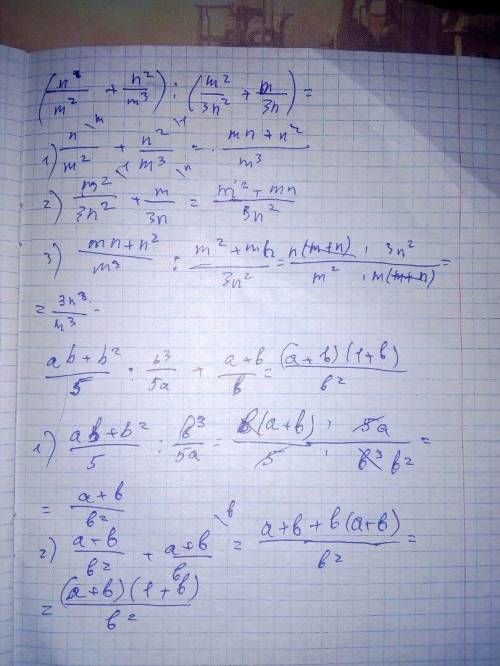 (n²/m² + n²/m³) : (m²/3n² + m/3n) =
1) n/m² \m + n²/m³ \1 = mn + n²/m³
2) m²/3n² \1 + m/3n \n = m² + mn/3n²
3) mn + n²/m³ : m² + mn/3n² = n(m+n) · 3n²/m² · m(m+n) =
= 3n³/m³ .
ab + b²/5 : b³/5a + a+b/b = (a+b)(1+b)/b²
1) ab + b²/5 : b³/5a = b(a+b) · 5a/5 · b³ b² =
= a+b/b²
2) a+b/b² + a+b/b \b = a+b + b(a+b)/b² =
= (a+b)(1+b)/b²